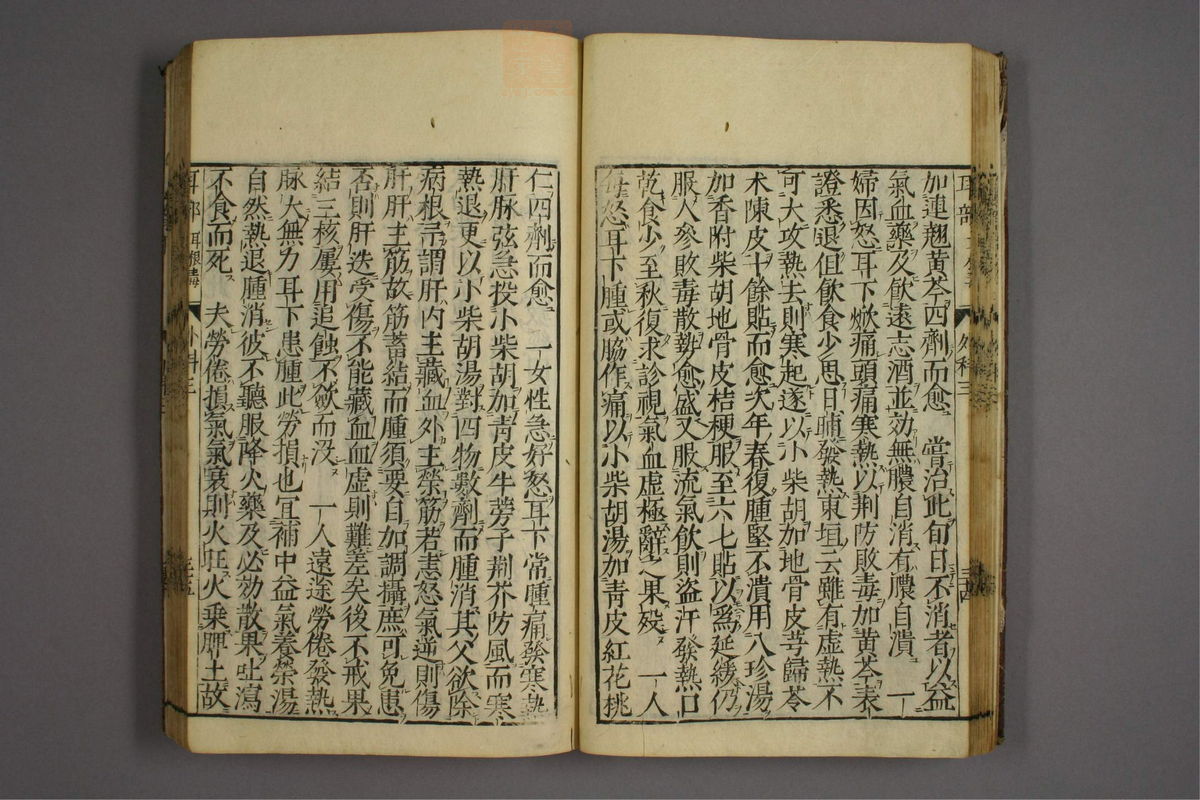 加連翹黄芩四劑而愈　嘗治此旬日不消者以益
氣血藥及飲遠志酒並効無膿自消有膿自潰　一
婦因怒耳下焮痛頭痛寒熱以荆防敗毒加黄芩表
證悉退但飲食少思日晡發熱東垣云雖有虚熱不
可大攻熱去則寒起遂以小柴胡加地骨皮芎歸苓
朮陳皮十餘貼而愈次年春復腫堅不潰用八珍湯
加香附柴胡地骨皮桔梗服至六七貼以爲延緩仍
服人參敗毒散勢愈盛又服流氣飲則盗汗發熱口
乾食少至秋復求診視氣血虚極辭之果殁　一人
每怒耳下腫或脇作痛以小柴胡湯加青皮紅花桃
耳部
外科三
三十四
仁四劑而愈　一女性急好怒耳下常腫痛發寒熱
肝脉弦急投小柴胡加青皮牛蒡子荆芥防風而寒
熱退更以小柴胡湯對四物數劑而腫消其父欲除
病根予謂肝内主藏血外主榮筋若恚怒氣逆則傷
肝肝主筋故筋蓄結而腫須要自加調攝庶可免患
否則肝迭受傷不能藏血血虚則難差矣後不戒果
結三核屢用追蝕不歛而没　一人遠途勞倦發熱
脉大無力耳下患腫此勞損也宜補中益氣養榮湯
自然熱退腫消彼不聽服降火藥及必効散果吐瀉
不食而死　夫勞倦損氣氣衰則火旺火乗脾土故
耳部
耳根毒
外科三
三十五